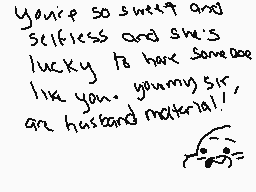 you're so sweet and
selfless and she's
lucky to have someone
like you. you my sir,
are husband material!